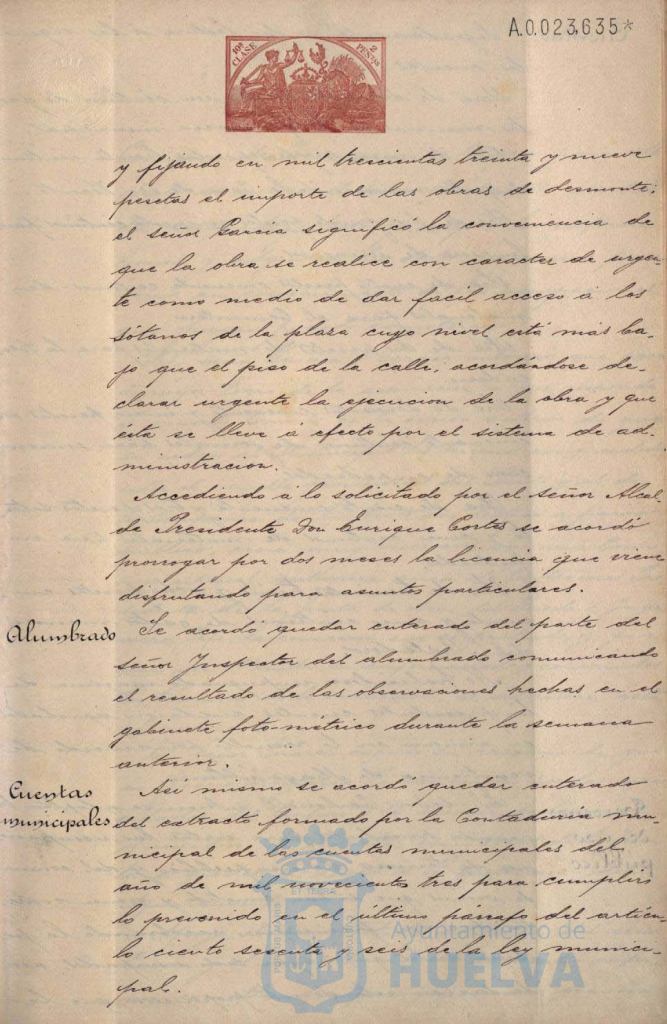 A.0.023,635*
10ª CLASE
2 PESETAS
y fijando en mil trescientas treinta y nueve
pesetas el importe de las obras de desmonte;
el señor Garcia significó la conveniencia de
que la obra se realice con caracter de urgen-
te como medio de dar facil acceso á los
sótanos de la plaza cuyo nivel está más ba-
jo que el piso de la calle, acordándose de-
clarar urgente la ejecucion de la obra y que
ésta se lleve á efecto por el sistema de ad-
ministracion.
Accediendo á lo solicitado por el señor Alcal-
de Presidente Don Enrique Cortés se acordó
prorrogar por dos meses la licencia que viene
disfrutando para asuntos particulares.
Alumbrado
Se acordó quedar enterado del parte del
señor Inspector del alumbrado comunicando
el resultado de las observaciones hechas en el
gabinete foto-métrico durante la semana
anterior.
Cuentas
municipales
Asi mismo se acordó quedar enterado
del extracto formado por la Contaduría mu-
nicipal de las cuentas municipales del
año de mil novecientos tres para cumplir
lo prevenido en el último párrafo del artícu-
lo ciento sesenta y seis de la ley munici-
pal.
Ayuntamiento de
HUELVA